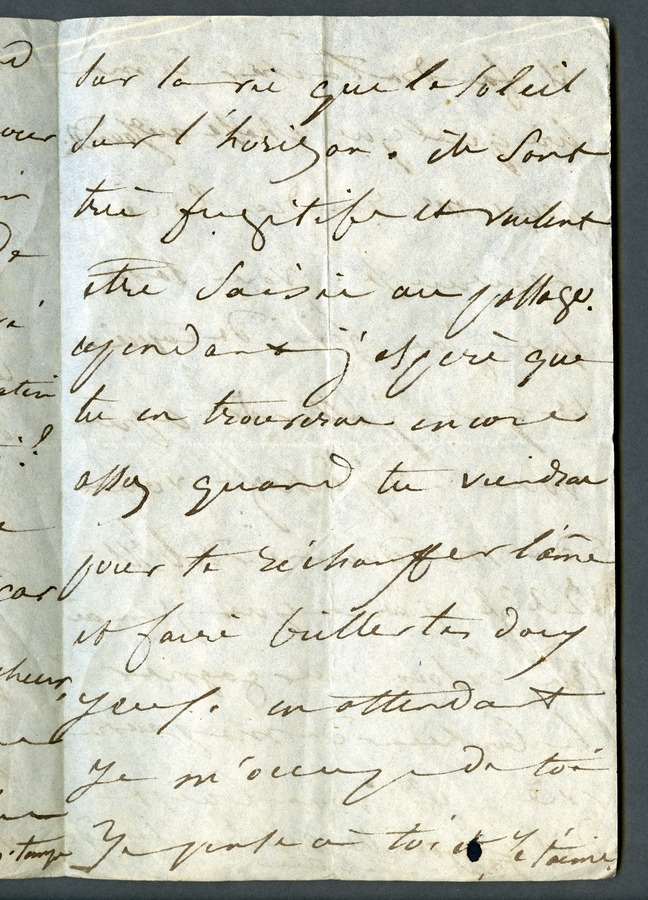 sur la vie que le soleil
sur l'horizon. ils sont
très fugitifs et veulent
être saisis au passage.
cependant j'espère que
tu en trouveras encore
assez quand tu viendras
pour te réchauffer l'âme
et faire briller tes doux
yeux. en attendant
je m'occupe de toi
Je pense à toi et je t'aime.